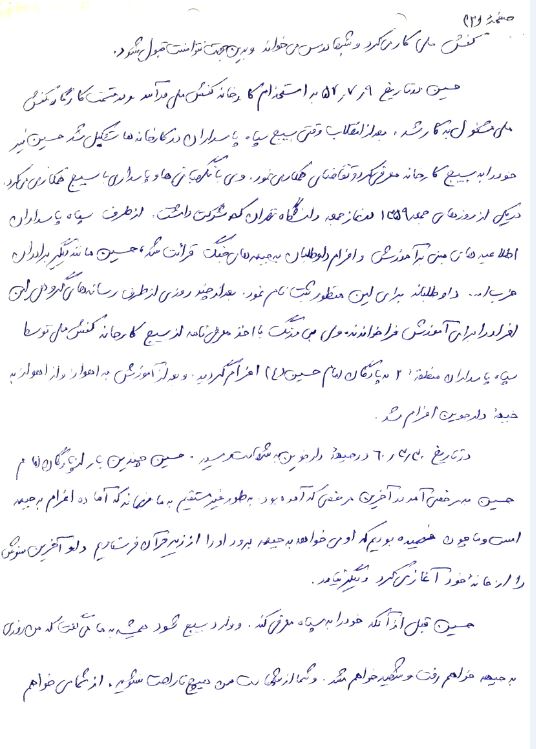 صفحهٔ (۳)
کفش ملی کار می‌کرد و شبها درس می‌خواند و بدین جهت نتوانست قبول شود.
حسین در تاریخ ۵۲٫۷٫۹ به استخدام کارخانه کفش ملی درآمد و در قسمت کارگاه کفش
ملی مشغول به کار شد، بعد از انقلاب وقتی بسیج سپاه پاسداران در کارخانه‌ها تشکیل شد حسین نیز
خود را به بسیج کارخانه معرفی کرد و تقاضای همکاری نمود. وی با نگهبانی‌ها و پاسداری با بسیج همکاری می‌کرد.
در یکی از روزهای جمعه ۱۳۵۹ نماز جمعه دانشگاه تهران که شرکت داشت. از طرف سپاه پاسداران
اطلاعیه‌های مبنی بر آموزش و اعزام داوطلبان به جبهه‌های جنگ قرائت شد، حسین مانند دیگر برادران
حزب‌ا... داوطلبانه برای این منظور ثبت نام نمود. بعد از چند روزی از طرف رسانه‌های گروهی این
افراد را برای آموزش فرا خواندند وی بی‌درنگ با اخذ معرفی‌نامه از بسیج کارخانه کفش ملی توسط
سپاه پاسداران منطقه ۲ به پادگان امام حسین (ع) اعزام گردید. و بعد از آموزش به اهواز و از اهواز به
جبههٔ دارخوین اعزام شد.
در تاریخ ۶۰٫۳٫۳۰ در جبههٔ دارخوین به شهادت رسید. حسین چندین بار از پادگان امام
حسین به مرخصی آمد در آخرین مرخصی که آمده بود. به طور غیر مستقیم به ما فهماند که آماده اعزام به جبهه
است و ما چون فهمیده بودیم که او می‌خواهد به جبهه برود او را از زیر قرآن فرستادیم و او آخرین سفرش
را از خانهٔ خود آغاز می‌کرد و دیگر نیامد.
حسین قبل از آنکه خود را به سپاه معرفی کند. و وارد بسیج شود همیشه به ما می‌گفت که من روزی
به جبهه خواهم رفت و شهید خواهم شد. و شما از شهادت من هیچ ناراحت نشوید، از شما می‌خواهم